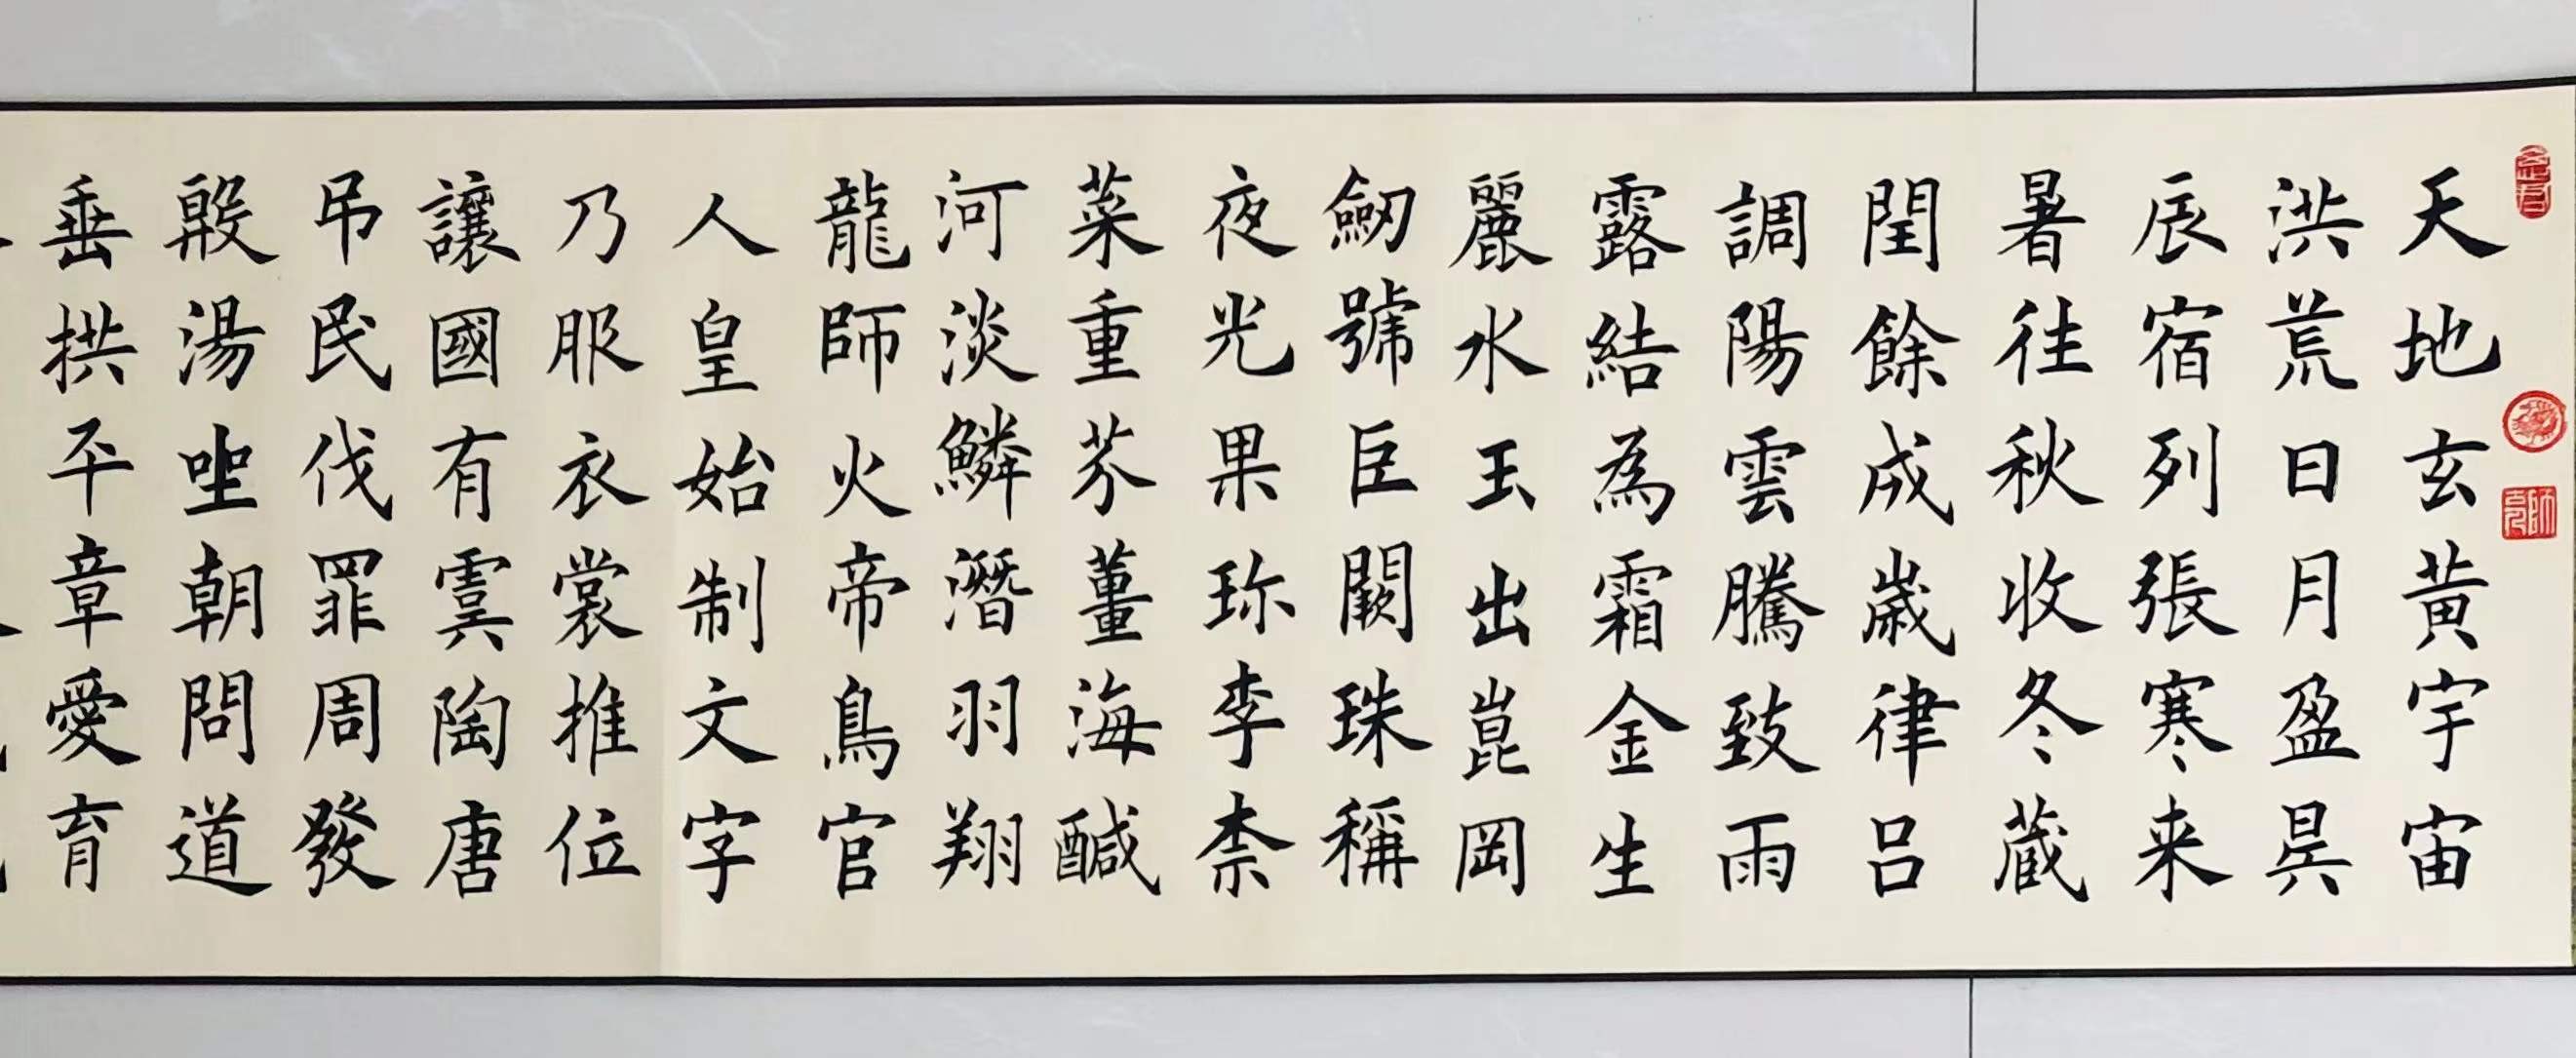 天地玄黃宇宙
洪荒日月盈昃
辰宿列張寒来
暑往秋收冬蔵
閏餘成嵗律吕
調陽雲騰致雨
露結為霜金生
麗水玉出崑岡
劒號巨闕珠稱
夜光果珎李柰
菜重芥薑海醎
河淡鱗潛羽翔
龍師火帝鳥官
人皇始制文字
乃服衣裳推位
讓國有虞陶唐
吊民伐罪周發
殷湯坐朝問道
垂拱平章愛育